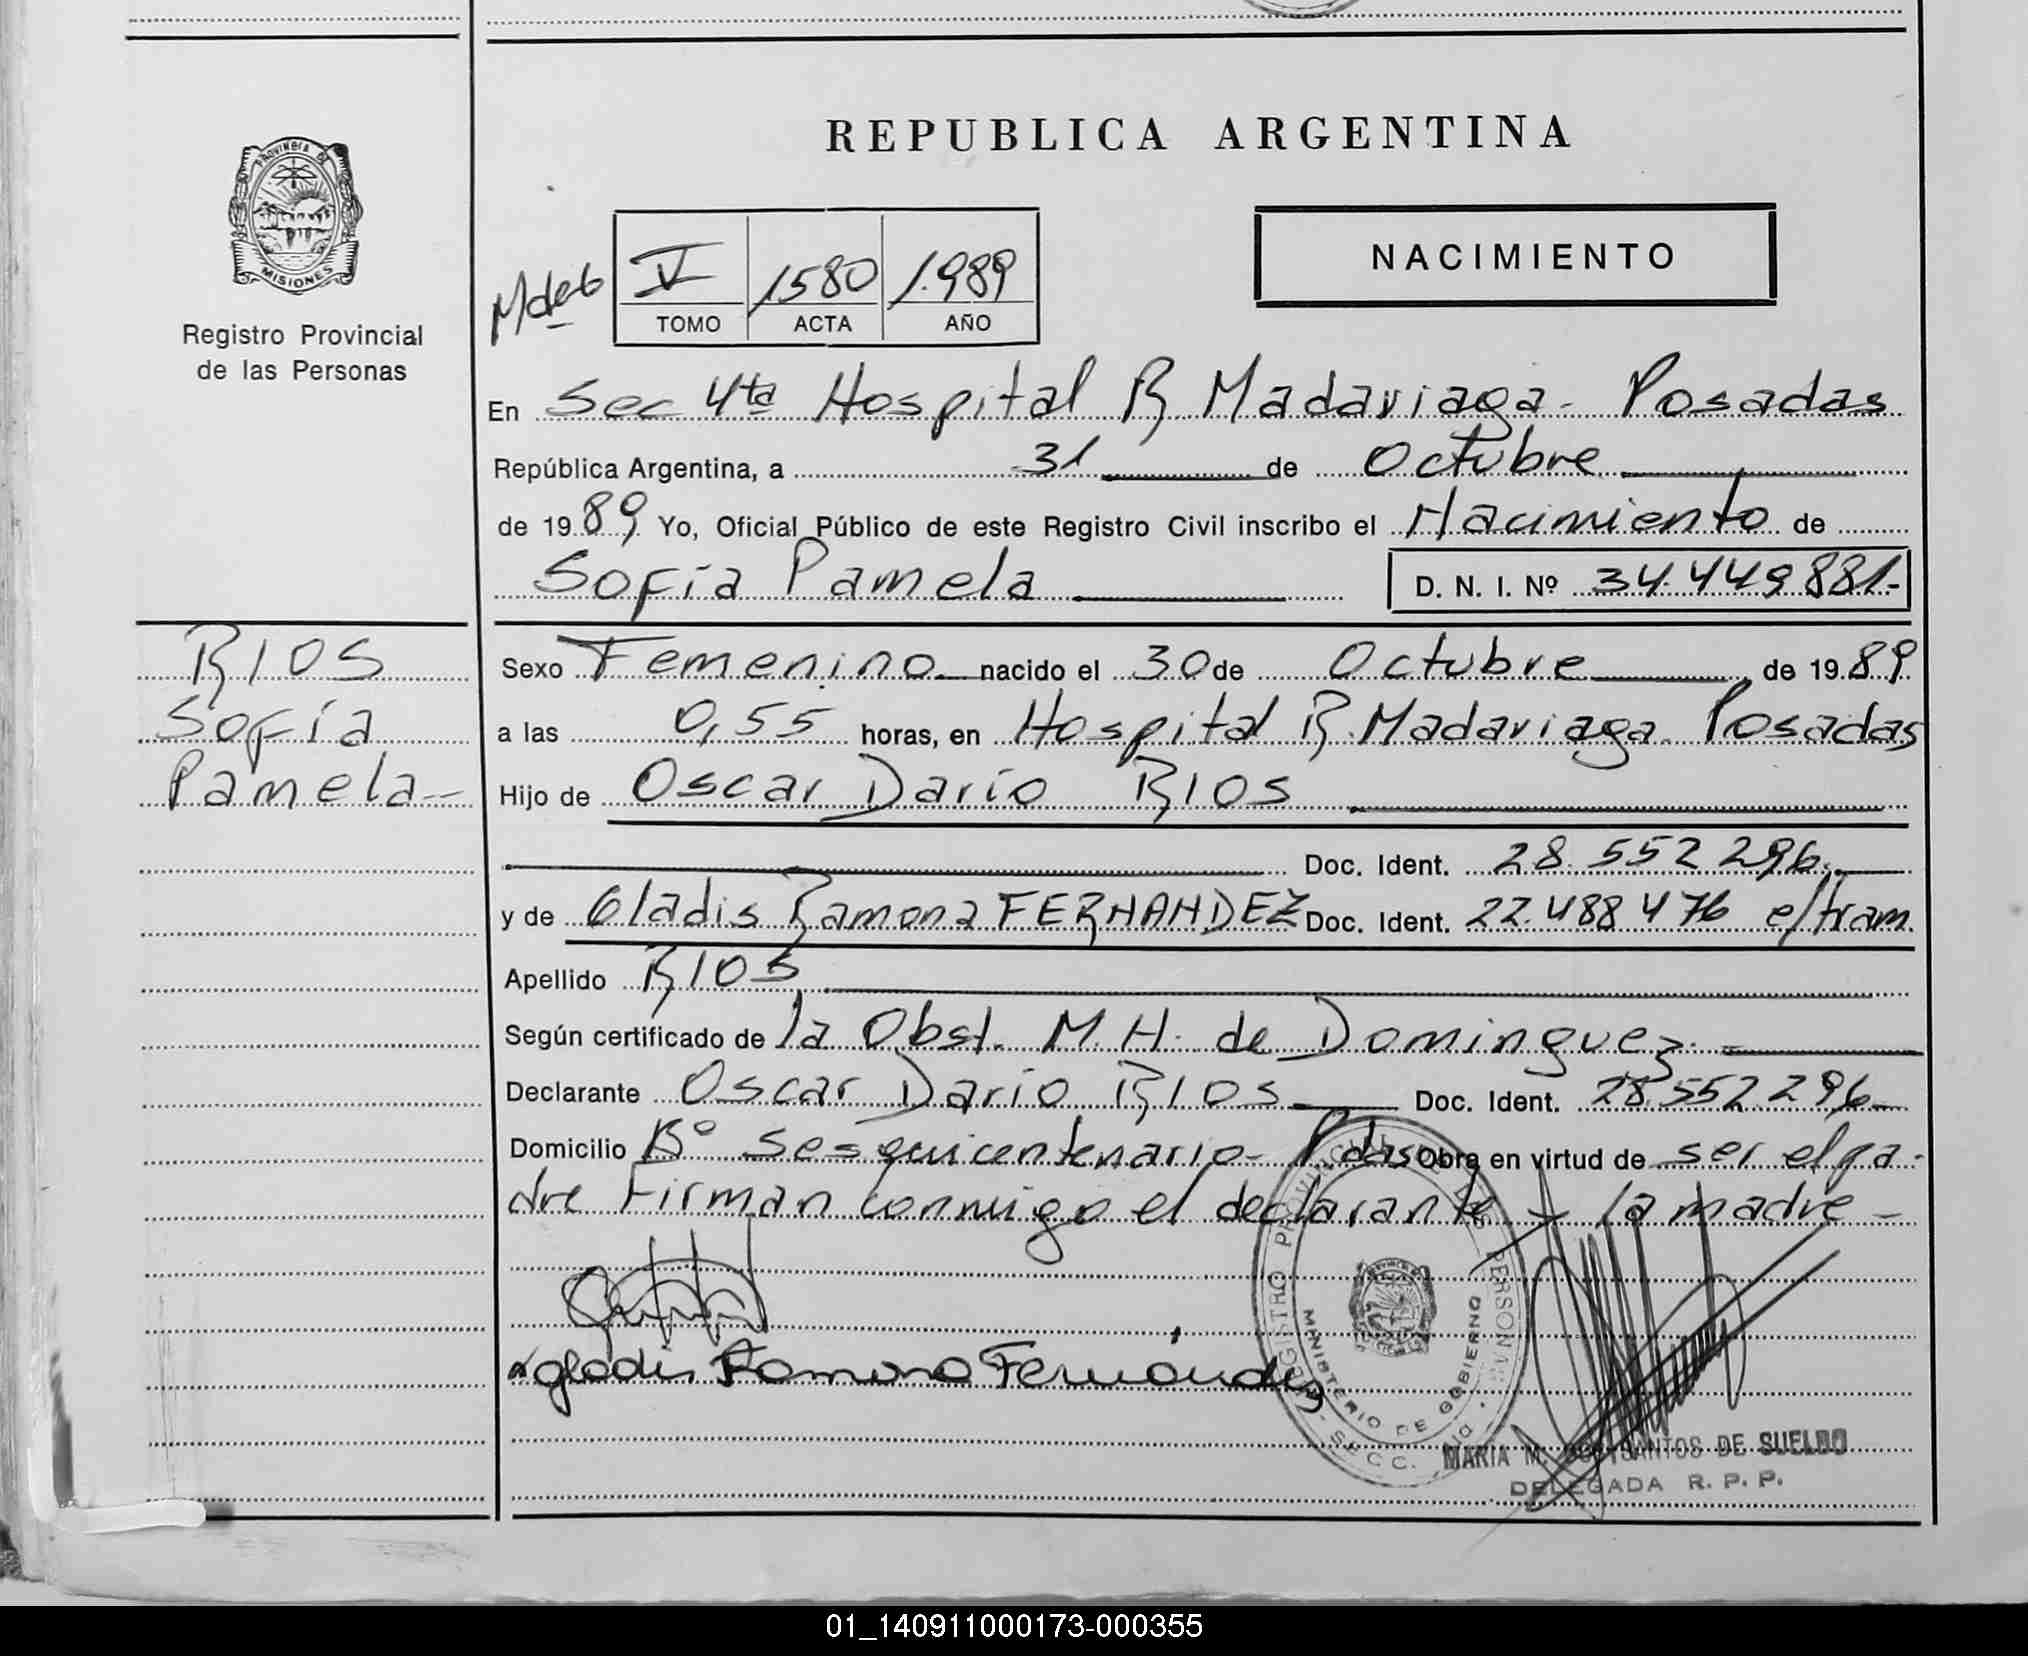 REPUBLICA ARGENTINA
PROVINCIA DE
MISIONES
Registro Provincial
de las Personas
V 1580 1.989
TOMO ACTA AÑO
NACIMIENTO
En Sec 4ta Hospital R Madariaga - Posadas
República Argentina, a 31 de Octubre
de 1989 Yo, Oficial Público de este Registro Civil inscribo el Nacimiento de
Sofía Pamela D. N. I. Nº 34.449.881.-
RIOS
Sofía
Pamela -
Sexo Femenino nacido el 30 de Octubre de 1989
a las 0,55 horas, en Hospital R. Madariaga. Posadas
Hijo de Oscar Darío RIOS
Doc. Ident. 28.552.296.
y de Gladis Ramona FERNANDEZ Doc. Ident. 22.488.476 e/tram.
Apellido RIOS
Según certificado de la Obst. M. H. de Dominguez. -
Declarante Oscar Darío RIOS Doc. Ident. 28.552.296-
Domicilio Bº Sesquicentenario - Pdas Obra en virtud de ser el pa-
dre Firman conmigo el declarante y la madre -
Gladis Ramona Fernández
REGISTRO PROVINCIAL DE LAS PERSONAS
MINISTERIO DE GOBIERNO
SECC.
MARIA M. SANTOS DE SUELDO
DELEGADA R. P. P.
01_140911000173-000355